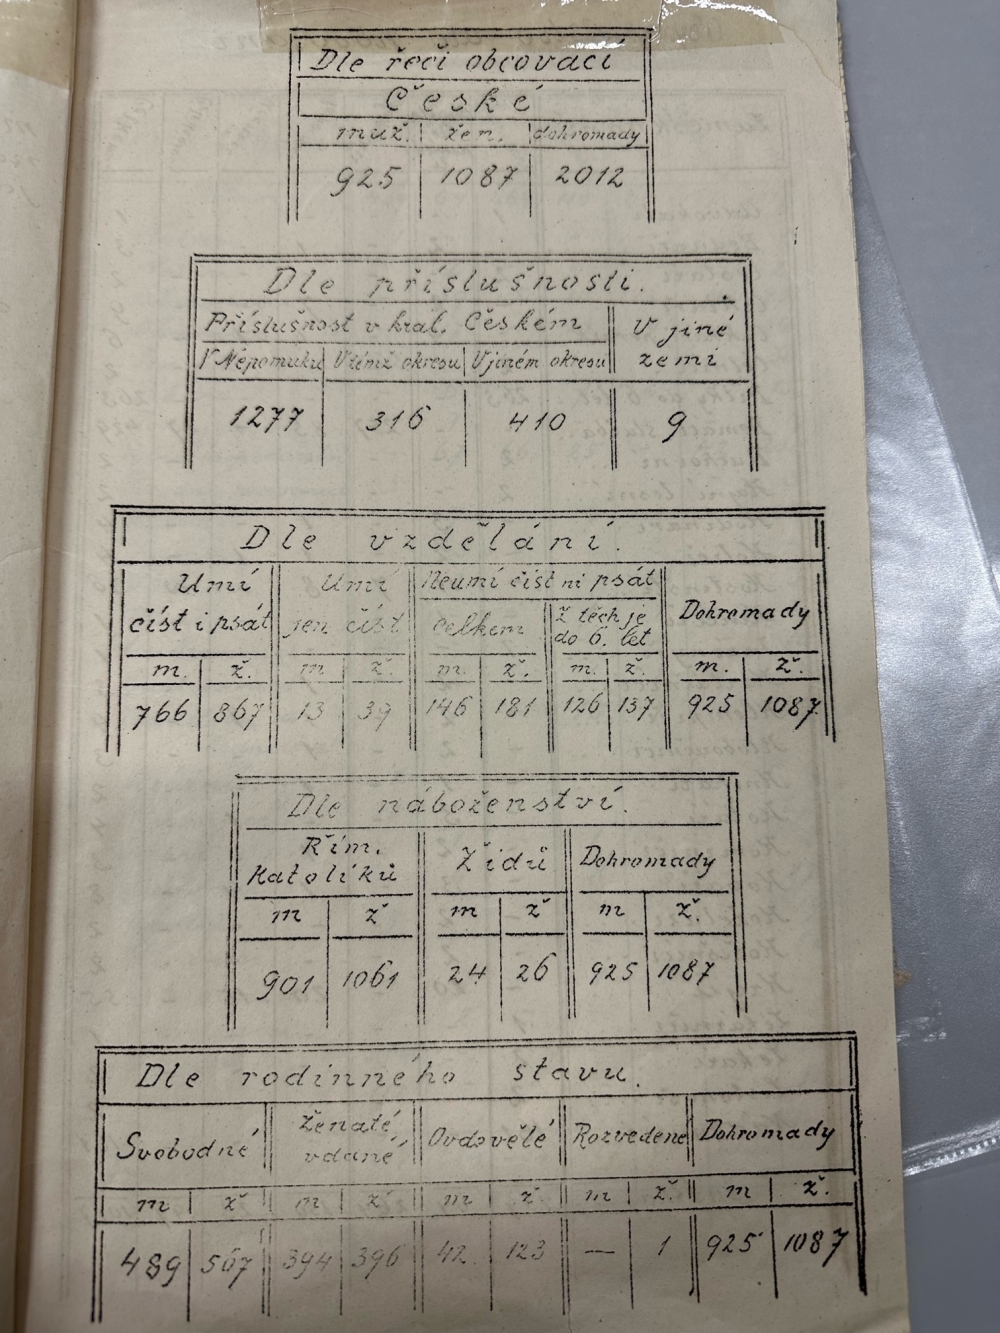 Dle řeči obcovací
České
muž. žen. dohromady
925 1087 2012
Dle příslušnosti.
Příslušnost v král. Českém V jiné
V Nepomuku V témž okresu V jiném okresu zemi
1277 316 410 9
Dle vzdělání.
Umí Umí Neumí číst ni psát
číst i psát jen číst celkem Z těch je do 6. let Dohromady
m. ž. m ž. m. ž. m. ž. m. ž.
766 867 13 39 146 181 126 137 925 1087
Dle náboženství.
Řím. Katolíků Židů Dohromady
m ž m ž m ž.
901 1061 24 26 925 1087
Dle rodinného stavu.
Svobodné Ženaté vdané Ovdovělé Rozvedené Dohromady
m ž m ž. m ž. m ž. m ž.
489 567 394 396 42 123 — 1 925 1087